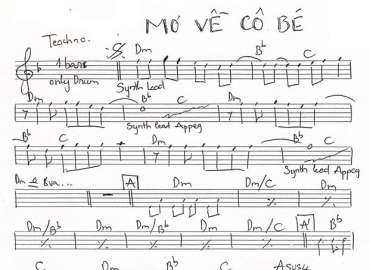 MƠ VỀ CÔ BÉ
Techno.
Dm B♭ C
1 bars
only Drum
Synth Lead
Dm B♭ C
Synth lead Appeg
B♭ C Dm B♭ C
Synth lead Appeg
Dm 8va... A Dm Dm/C Dm
Dm/B♭ Dm Dm/B♭ Dm Dm/C A' B♭
C Dm B♭ C Asus4